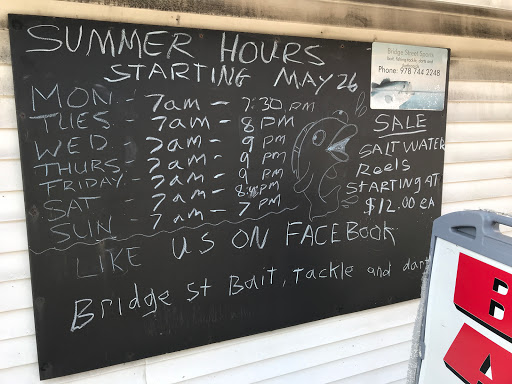 SUMMER HOURS
STARTING MAY 26
MON - 7am - 7:30 PM
TUES - 7am - 8 PM
WED - 7am - 9 PM
THURS - 7am - 9 PM
FRIDAY - 7am - 9 PM
SAT - 7am - PM
SUN - 7am - 7 PM
SALE
SALT WATER
Reels
STARTING AT
$12.00 ea
LIKE US ON FACEBOOK
Bridge St Bait, Tackle and dart
Bridge Street Sports
Phone: 978 744 2248
B
A